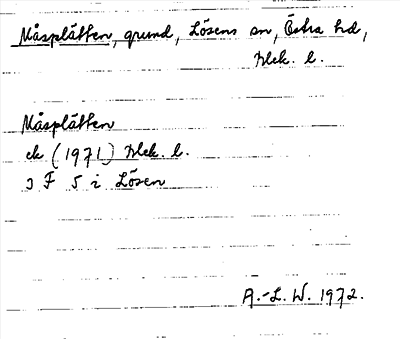 Måsplätten, grund, Lösens sn, Östra hd,
Blek. l.
Måsplätten
ek (1971) Blek. l.
3 F 5 i Lösen
A.-L. W. 1972.